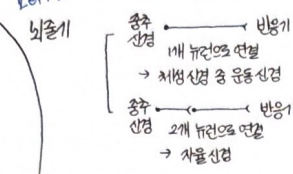 뇌줄기
중추신경 반응기
1개 뉴런으로 연결
→ 체성 신경 중 운동신경
중추신경 반응기
2개 뉴런으로 연결
→ 자율신경